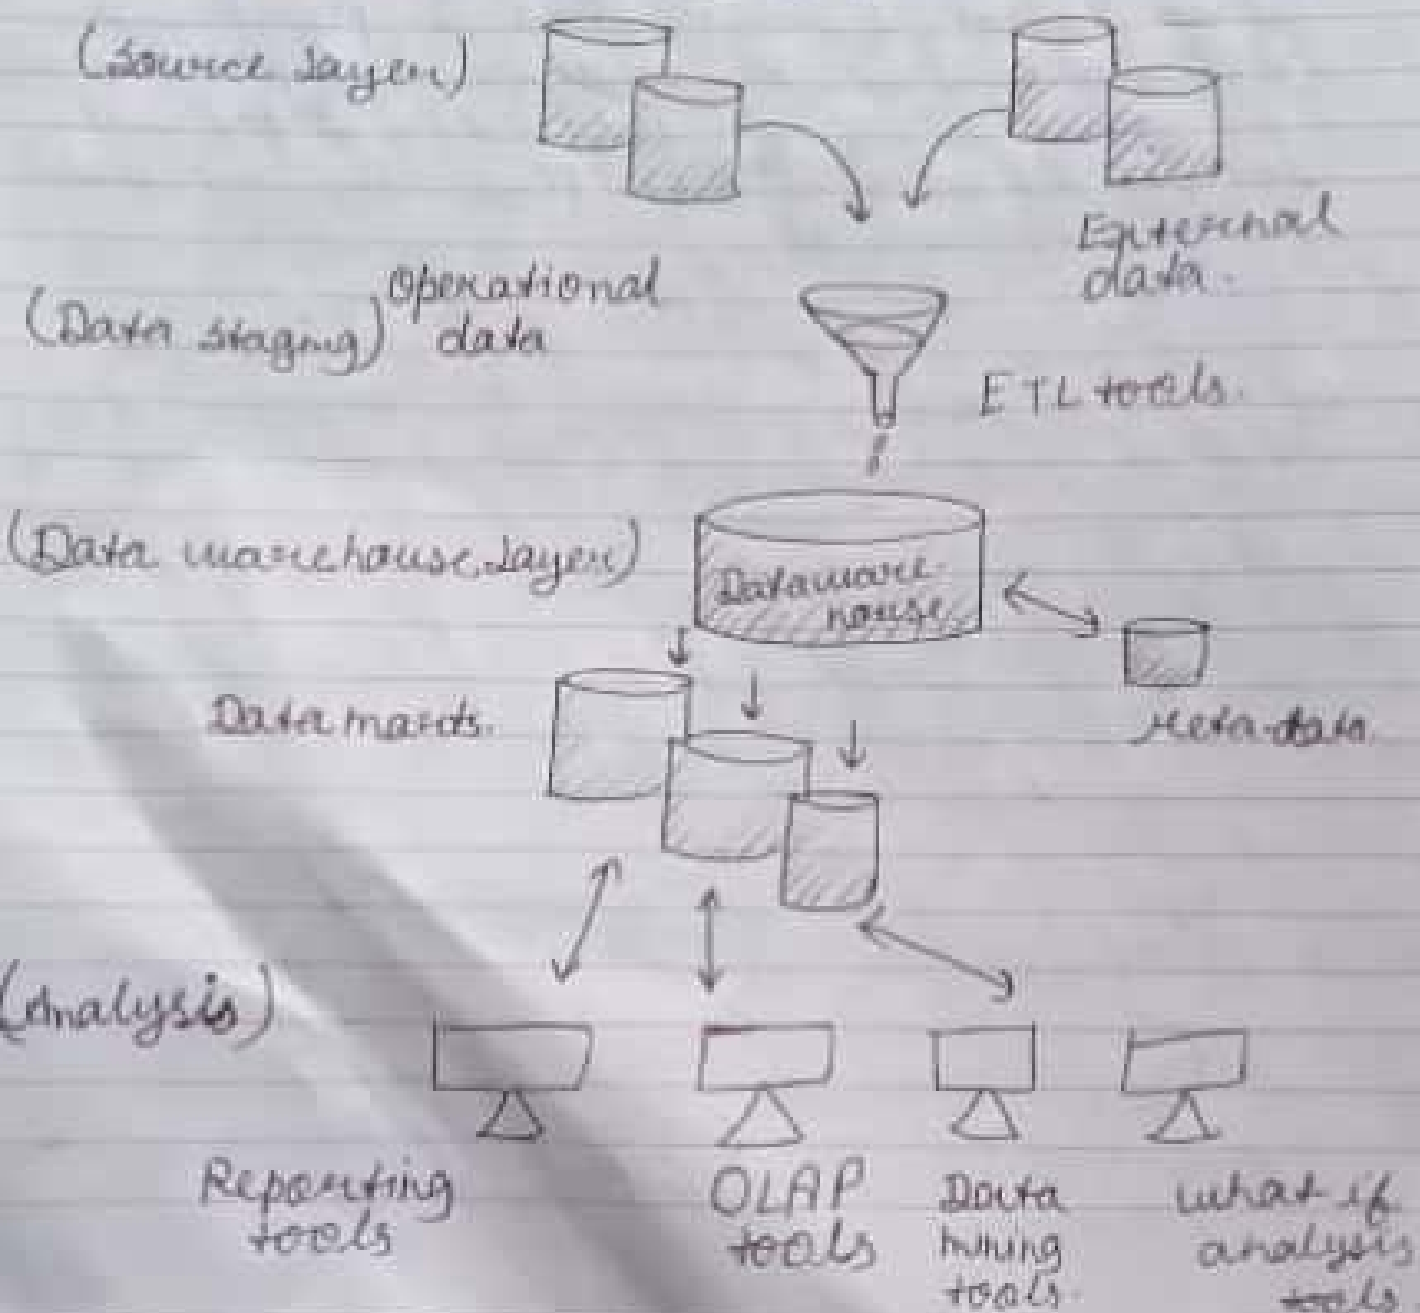 (Source Layer)
External
data.
Operational
data
(Data staging)
ETL tools.
(Data warehouse Layer)
Dataware-
house
Data marts.
Meta-data.
(Analysis)
Reporting
tools
OLAP
tools
Data
mining
tools.
what if
analysis
tools